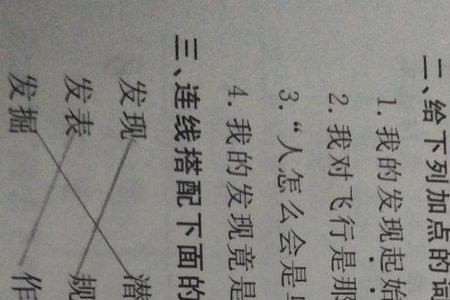 二、给下列加点的词
1.我的发现起始
2.我对飞行是那
3.“人怎么会是
4.我的发现竟是
三、连线搭配下面的
发现 潜
发表 规
发掘 作